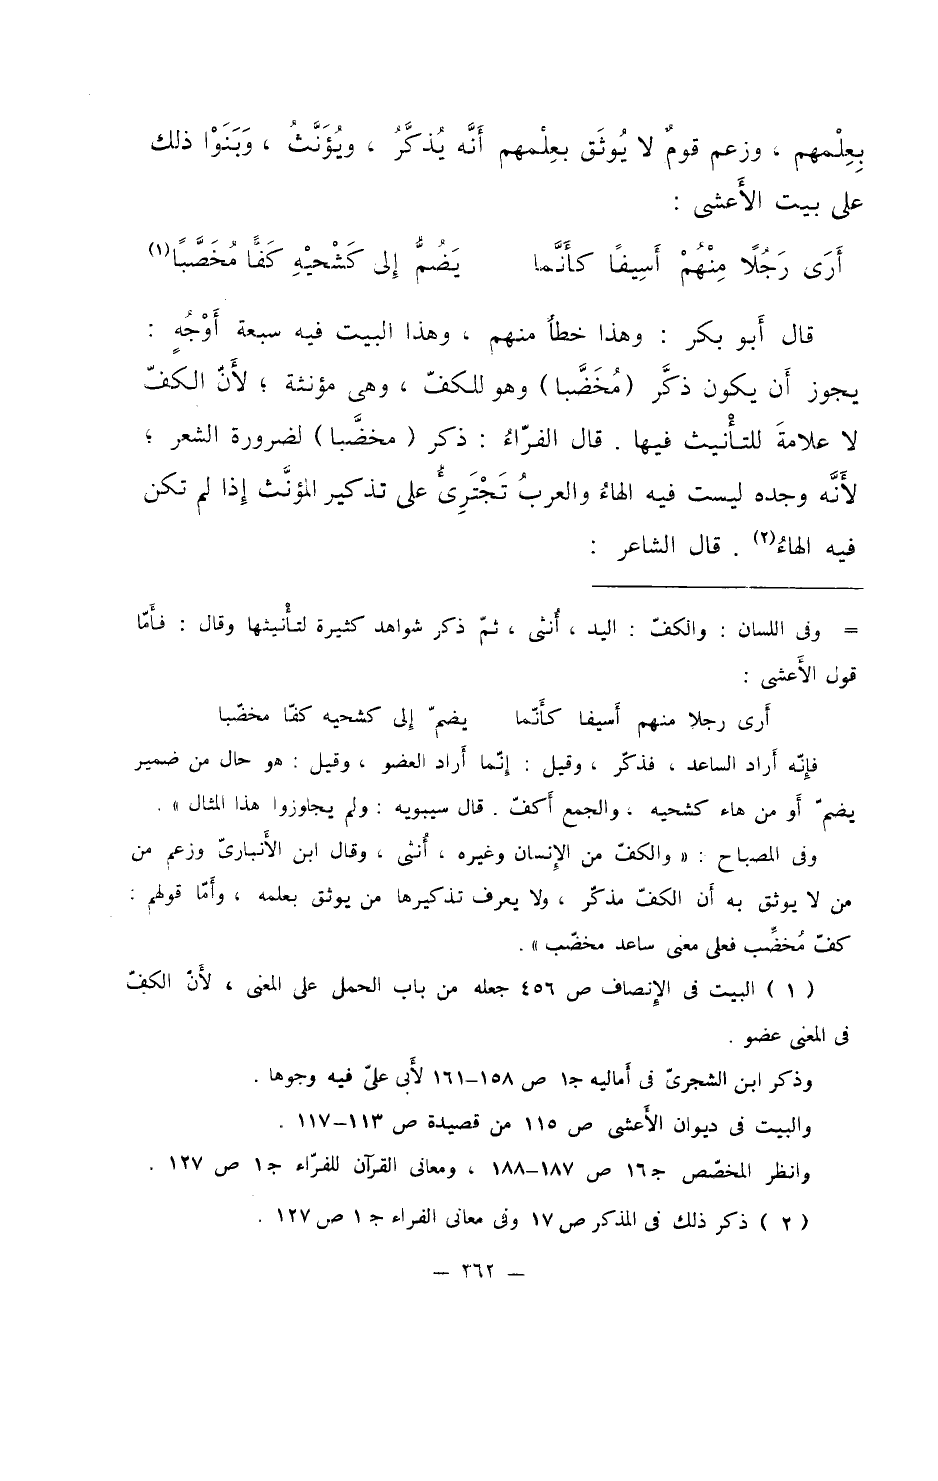 بِعِلْمهم ، وزعم قومٌ لا يُوثَق بعِلْمهم أَنَّه يُذكَّرُ ، ويُؤَنَّثُ ، وَبَنَوْا ذلك
على بيت الأَعشى :
أَرَى رَجُلًا مِنْهُمْ أَسِيفًا كأَنَّما يَضُمُّ إلى كَشْحَيْهِ كَفًّا مُخَضَّبًا(١)
قال أَبو بكر : وهذا خطأٌ منهم ، وهذا البيت فيه سبعة أَوْجُهٍ :
يجوز أَن يكون ذكَّر (مُخَضَّبا) وهو للكفّ ، وهى مؤنثة ؛ لأَنّ الكفّ
لا علامةَ للتأْنيث فيها . قال الفرّاءُ : ذكر ( مخضَّبا ) لضرورة الشعر ؛
لأَنَّه وجده ليست فيه الهاءُ والعربُ تَجْتَرِئُ على تذكير المؤنَّث إذا لم تكن
فيه الهاءُ(٢) . قال الشاعر :
= وفى اللسان : والكفّ : اليد ، أُنثى ، ثمّ ذكر شواهد كثيرة لتأْنيثها وقال : فأَمّا
قول الأَعشى :
أَرى رجلا منهم أَسيفا كأَنّما يضمّ إلى كشحيه كفّا مخضّبا
فإنّه أَراد الساعد ، فذكّر ، وقيل : إنّما أَراد العضو ، وقيل : هو حال من ضمير
يضمّ أَو من هاء كشحيه ، والجمع أَكفّ . قال سيبويه : ولم يجاوزوا هذا المثال » .
وفى المصباح : « والكفّ من الإنسان وغيره ، أُنثى ، وقال ابن الأَنبارىّ وزعم من
من لا يوثق به أَن الكفّ مذكّر ، ولا يعرف تذكيرها من يوثق بعلمه ، وأَمّا قولهم :
كفّ مُخضَّب فعلى معنى ساعد مخضّب » .
( ١ ) البيت فى الإنصاف ص ٤٥٦ جعله من باب الحمل على المعنى ، لأَنّ الكفّ
فى المعنى عضو .
وذكر ابن الشجرىّ فى أماليه ج١ ص ١٥٨–١٦١ لأَبى علىّ فيه وجوها .
والبيت فى ديوان الأَعشى ص ١١٥ من قصيدة ص ١١٣–١١٧ .
وانظر المخصّص ج١٦ ص ١٨٧–١٨٨ ، ومعانى القرآن للفرّاء ج١ ص ١٢٧ .
( ٢ ) ذكر ذلك فى المذكر ص ١٧ وفى معانى الفراء ج ١ ص ١٢٧ .
– ٣٦٢ –